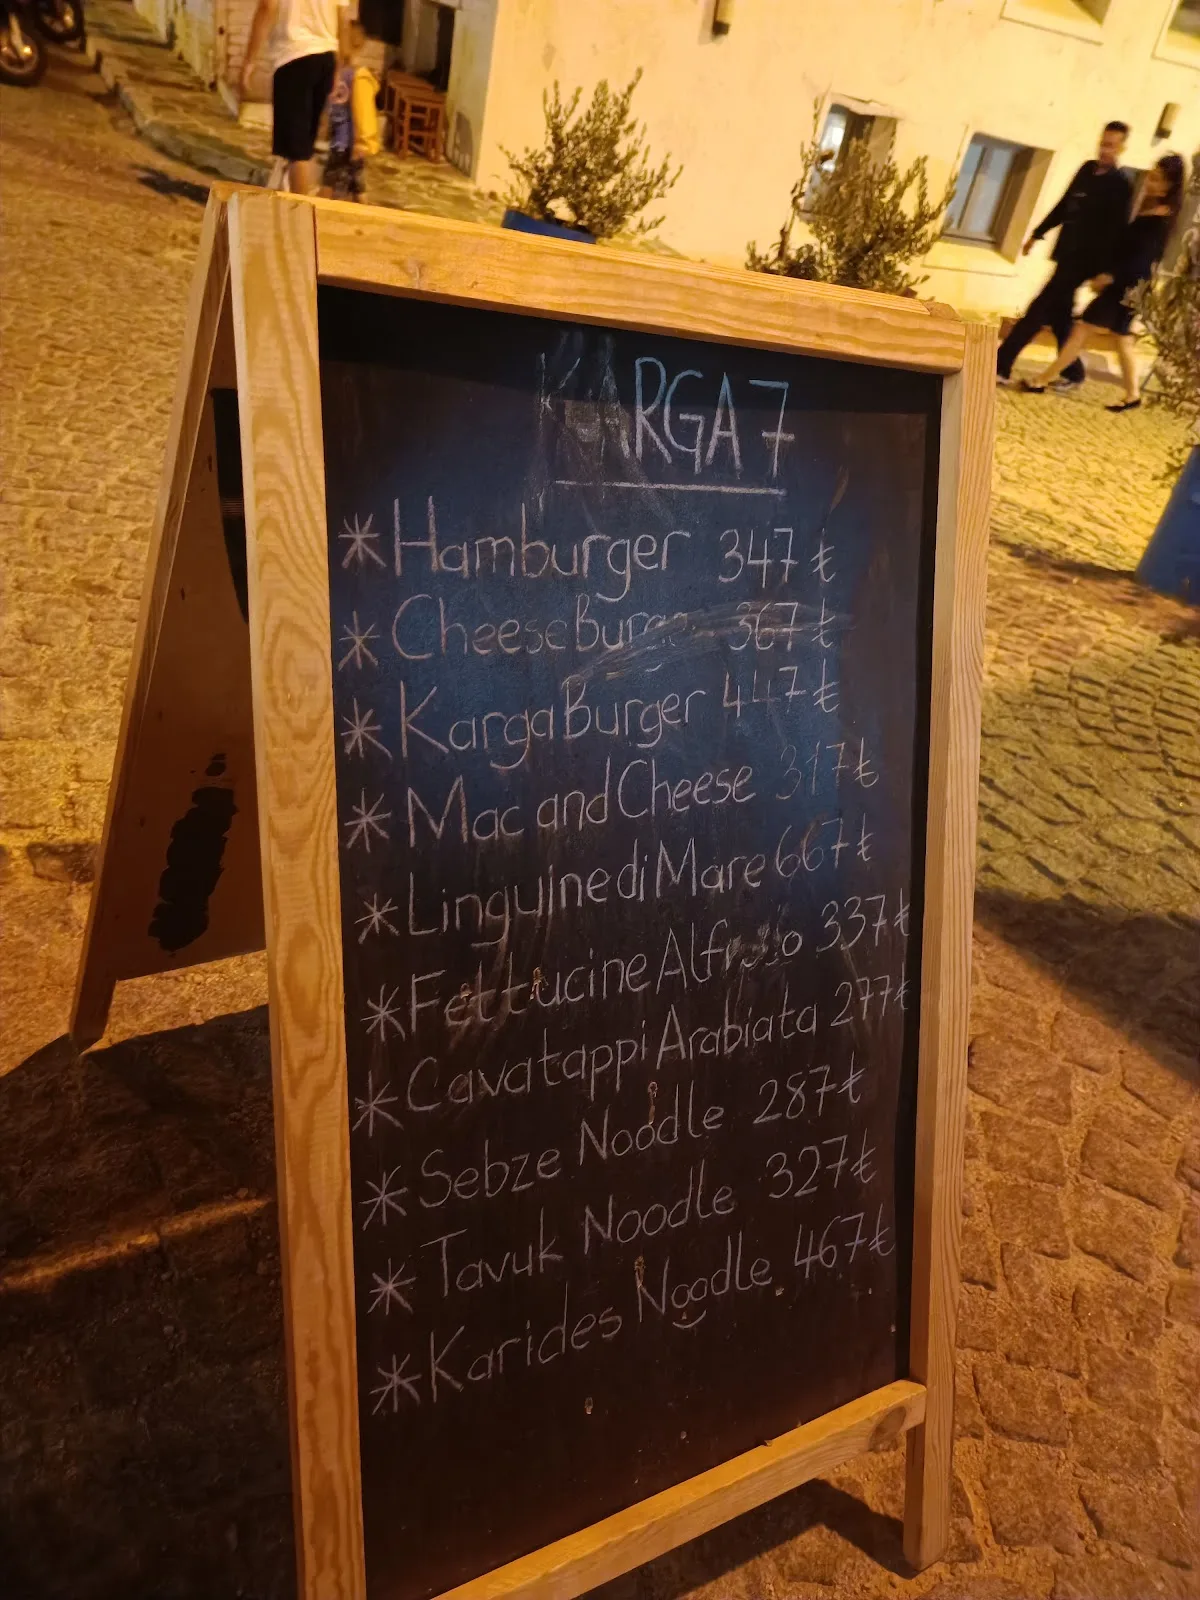 KARGA 7
* Hamburger 347 ₺
* CheeseBurger 367 ₺
* KargaBurger 447 ₺
* Mac and Cheese 317 ₺
* Linguine di Mare 667 ₺
* Fettucine Alfredo 337 ₺
* Cavatappi Arabiata 277 ₺
* Sebze Noodle 287 ₺
* Tavuk Noodle 327 ₺
* Karides Noodle 467 ₺